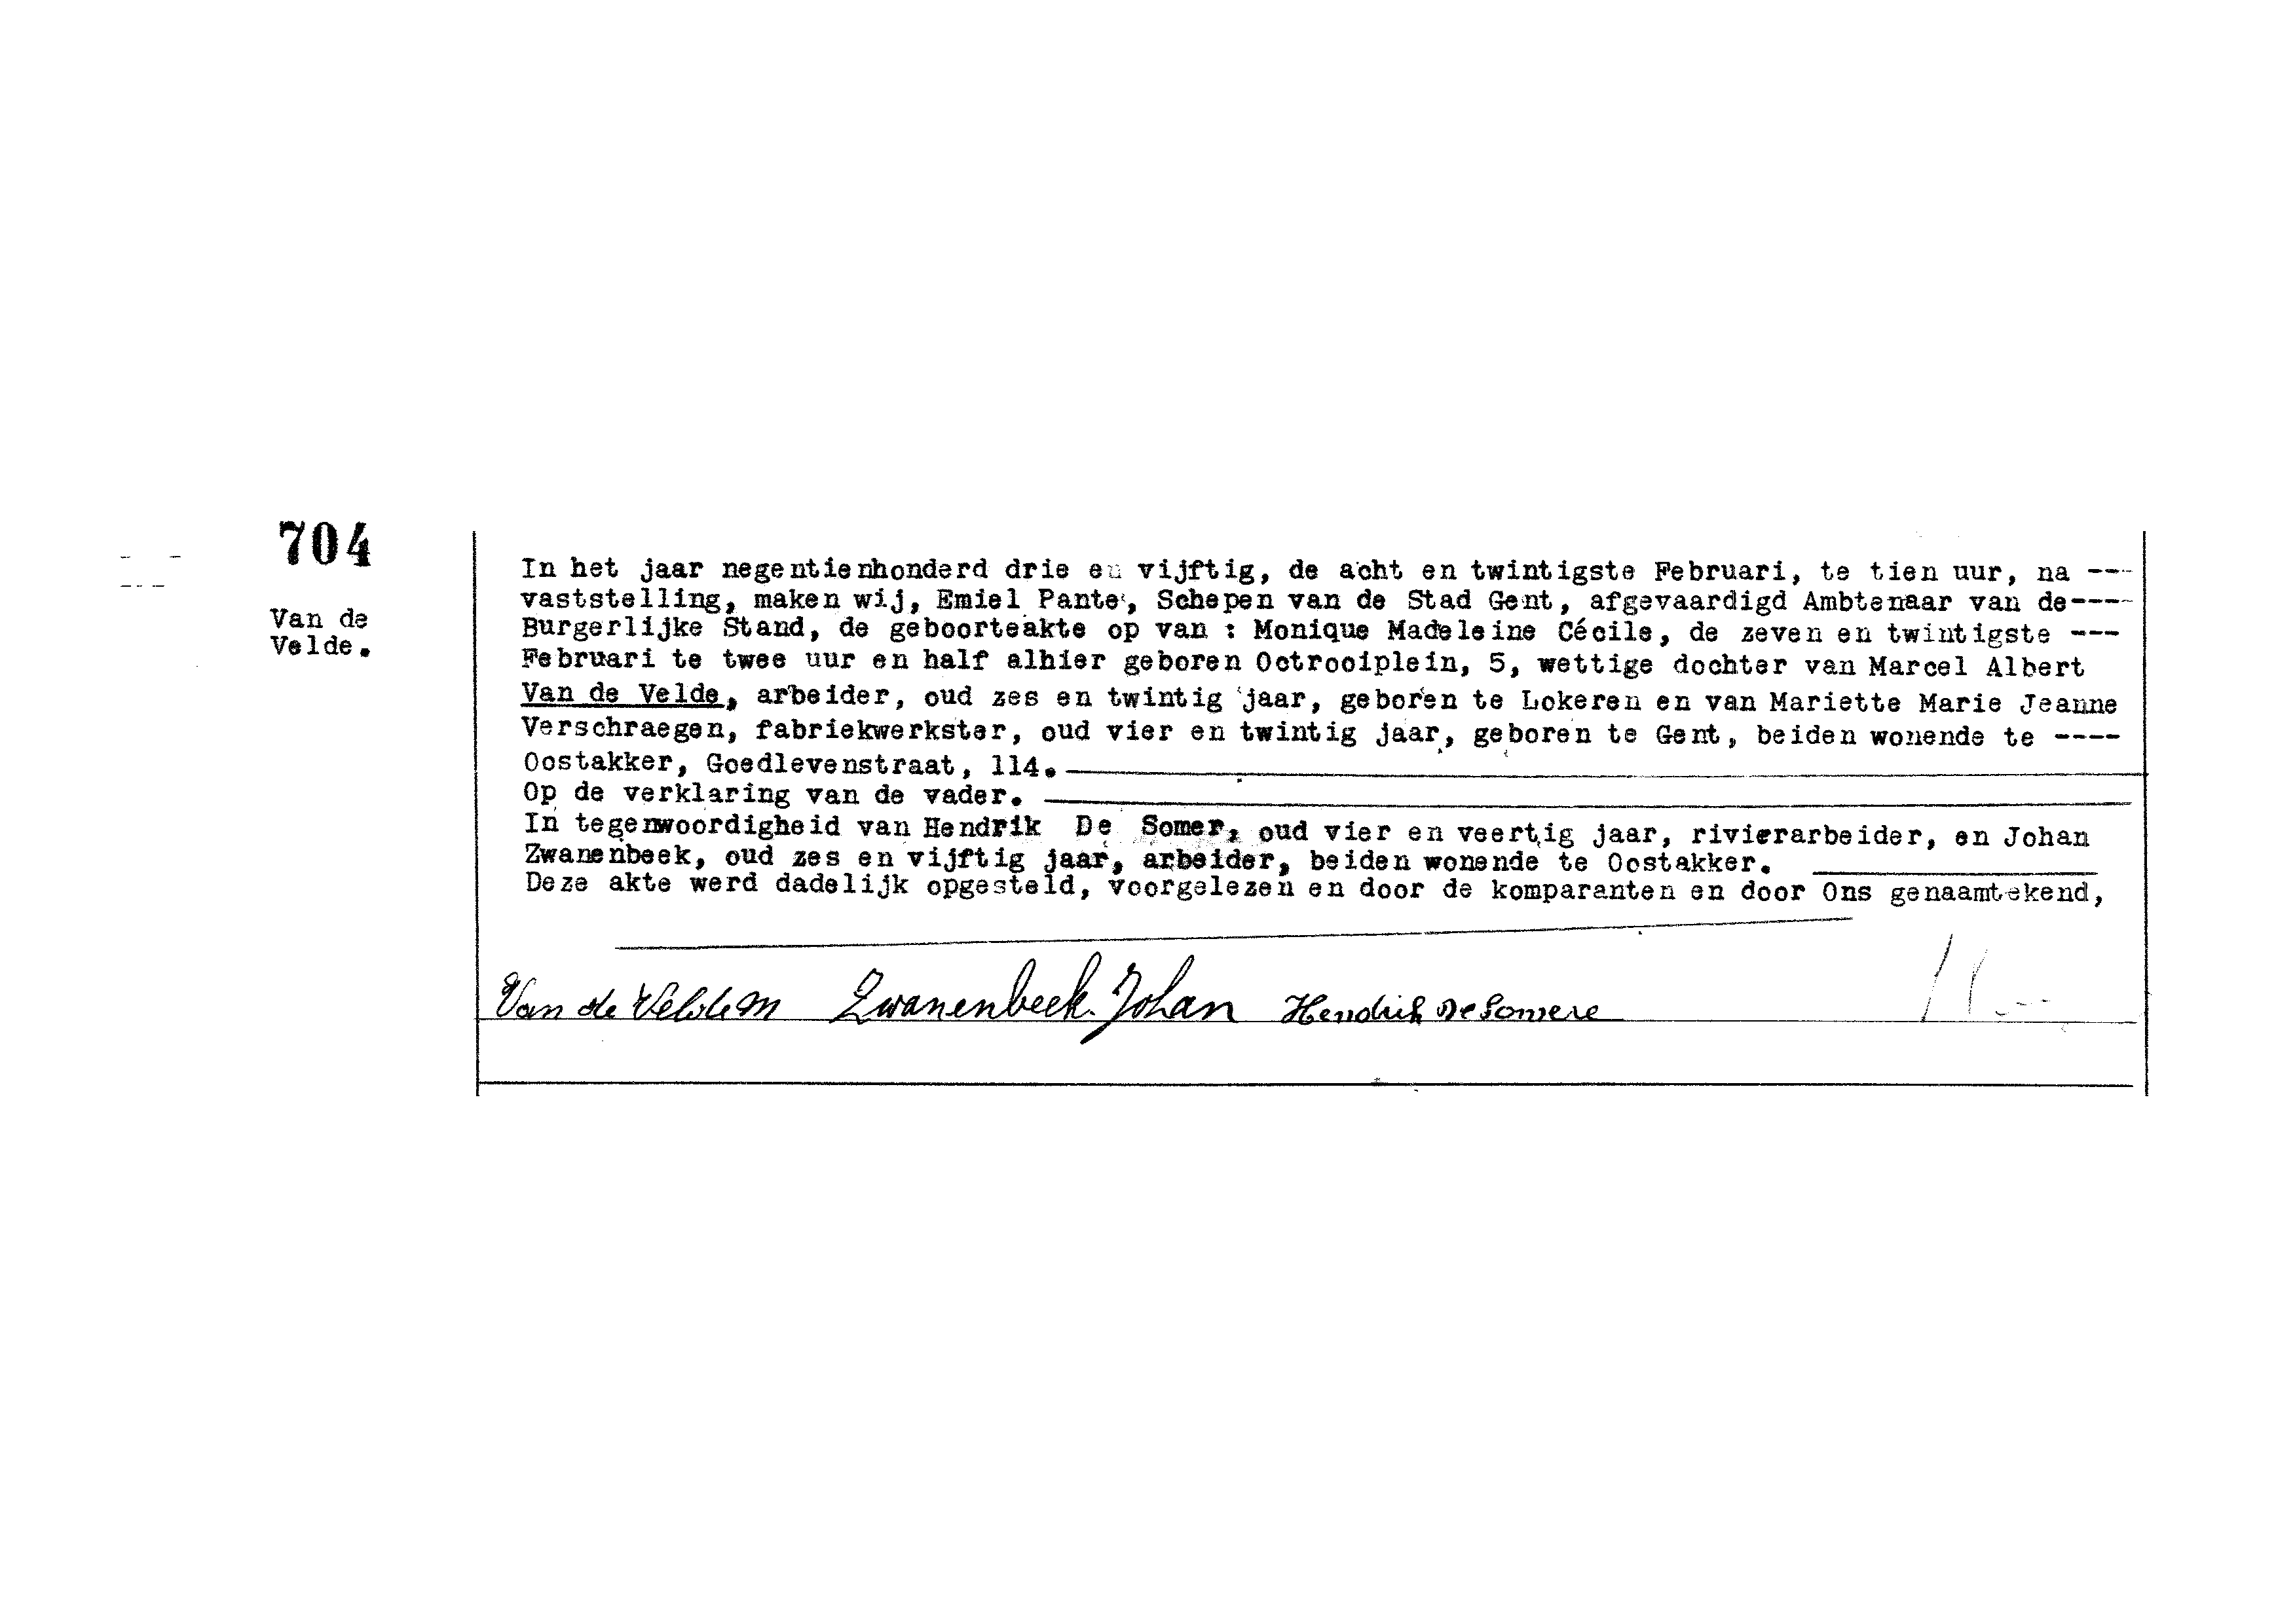 704
Van de
Velde.
In het jaar negentienhonderd drie en vijftig, de acht en twintigste Februari, te tien uur, na ---
vaststelling, maken wij, Emiel Pante, Schepen van de Stad Gent, afgevaardigd Ambtenaar van de----
Burgerlijke Stand, de geboorteakte op van : Monique Madeleine Cécile, de zeven en twintigste ---
Februari te twee uur en half alhier geboren Octrooiplein, 5, wettige dochter van Marcel Albert
Van de Velde, arbeider, oud zes en twintig jaar, geboren te Lokeren en van Mariette Marie Jeanne
Verschraegen, fabriekwerkster, oud vier en twintig jaar, geboren te Gent, beiden wonende te ----
Oostakker, Goedlevenstraat, 114.
Op de verklaring van de vader.
In tegenwoordigheid van Hendrik De Somer, oud vier en veertig jaar, rivierarbeider, en Johan
Zwanenbeek, oud zes en vijftig jaar, arbeider, beiden wonende te Oostakker.
Deze akte werd dadelijk opgesteld, voorgelezen en door de komparanten en door Ons genaamtekend,
Van de Velde M Zwanenbeek. Johan Hendrik De Somere